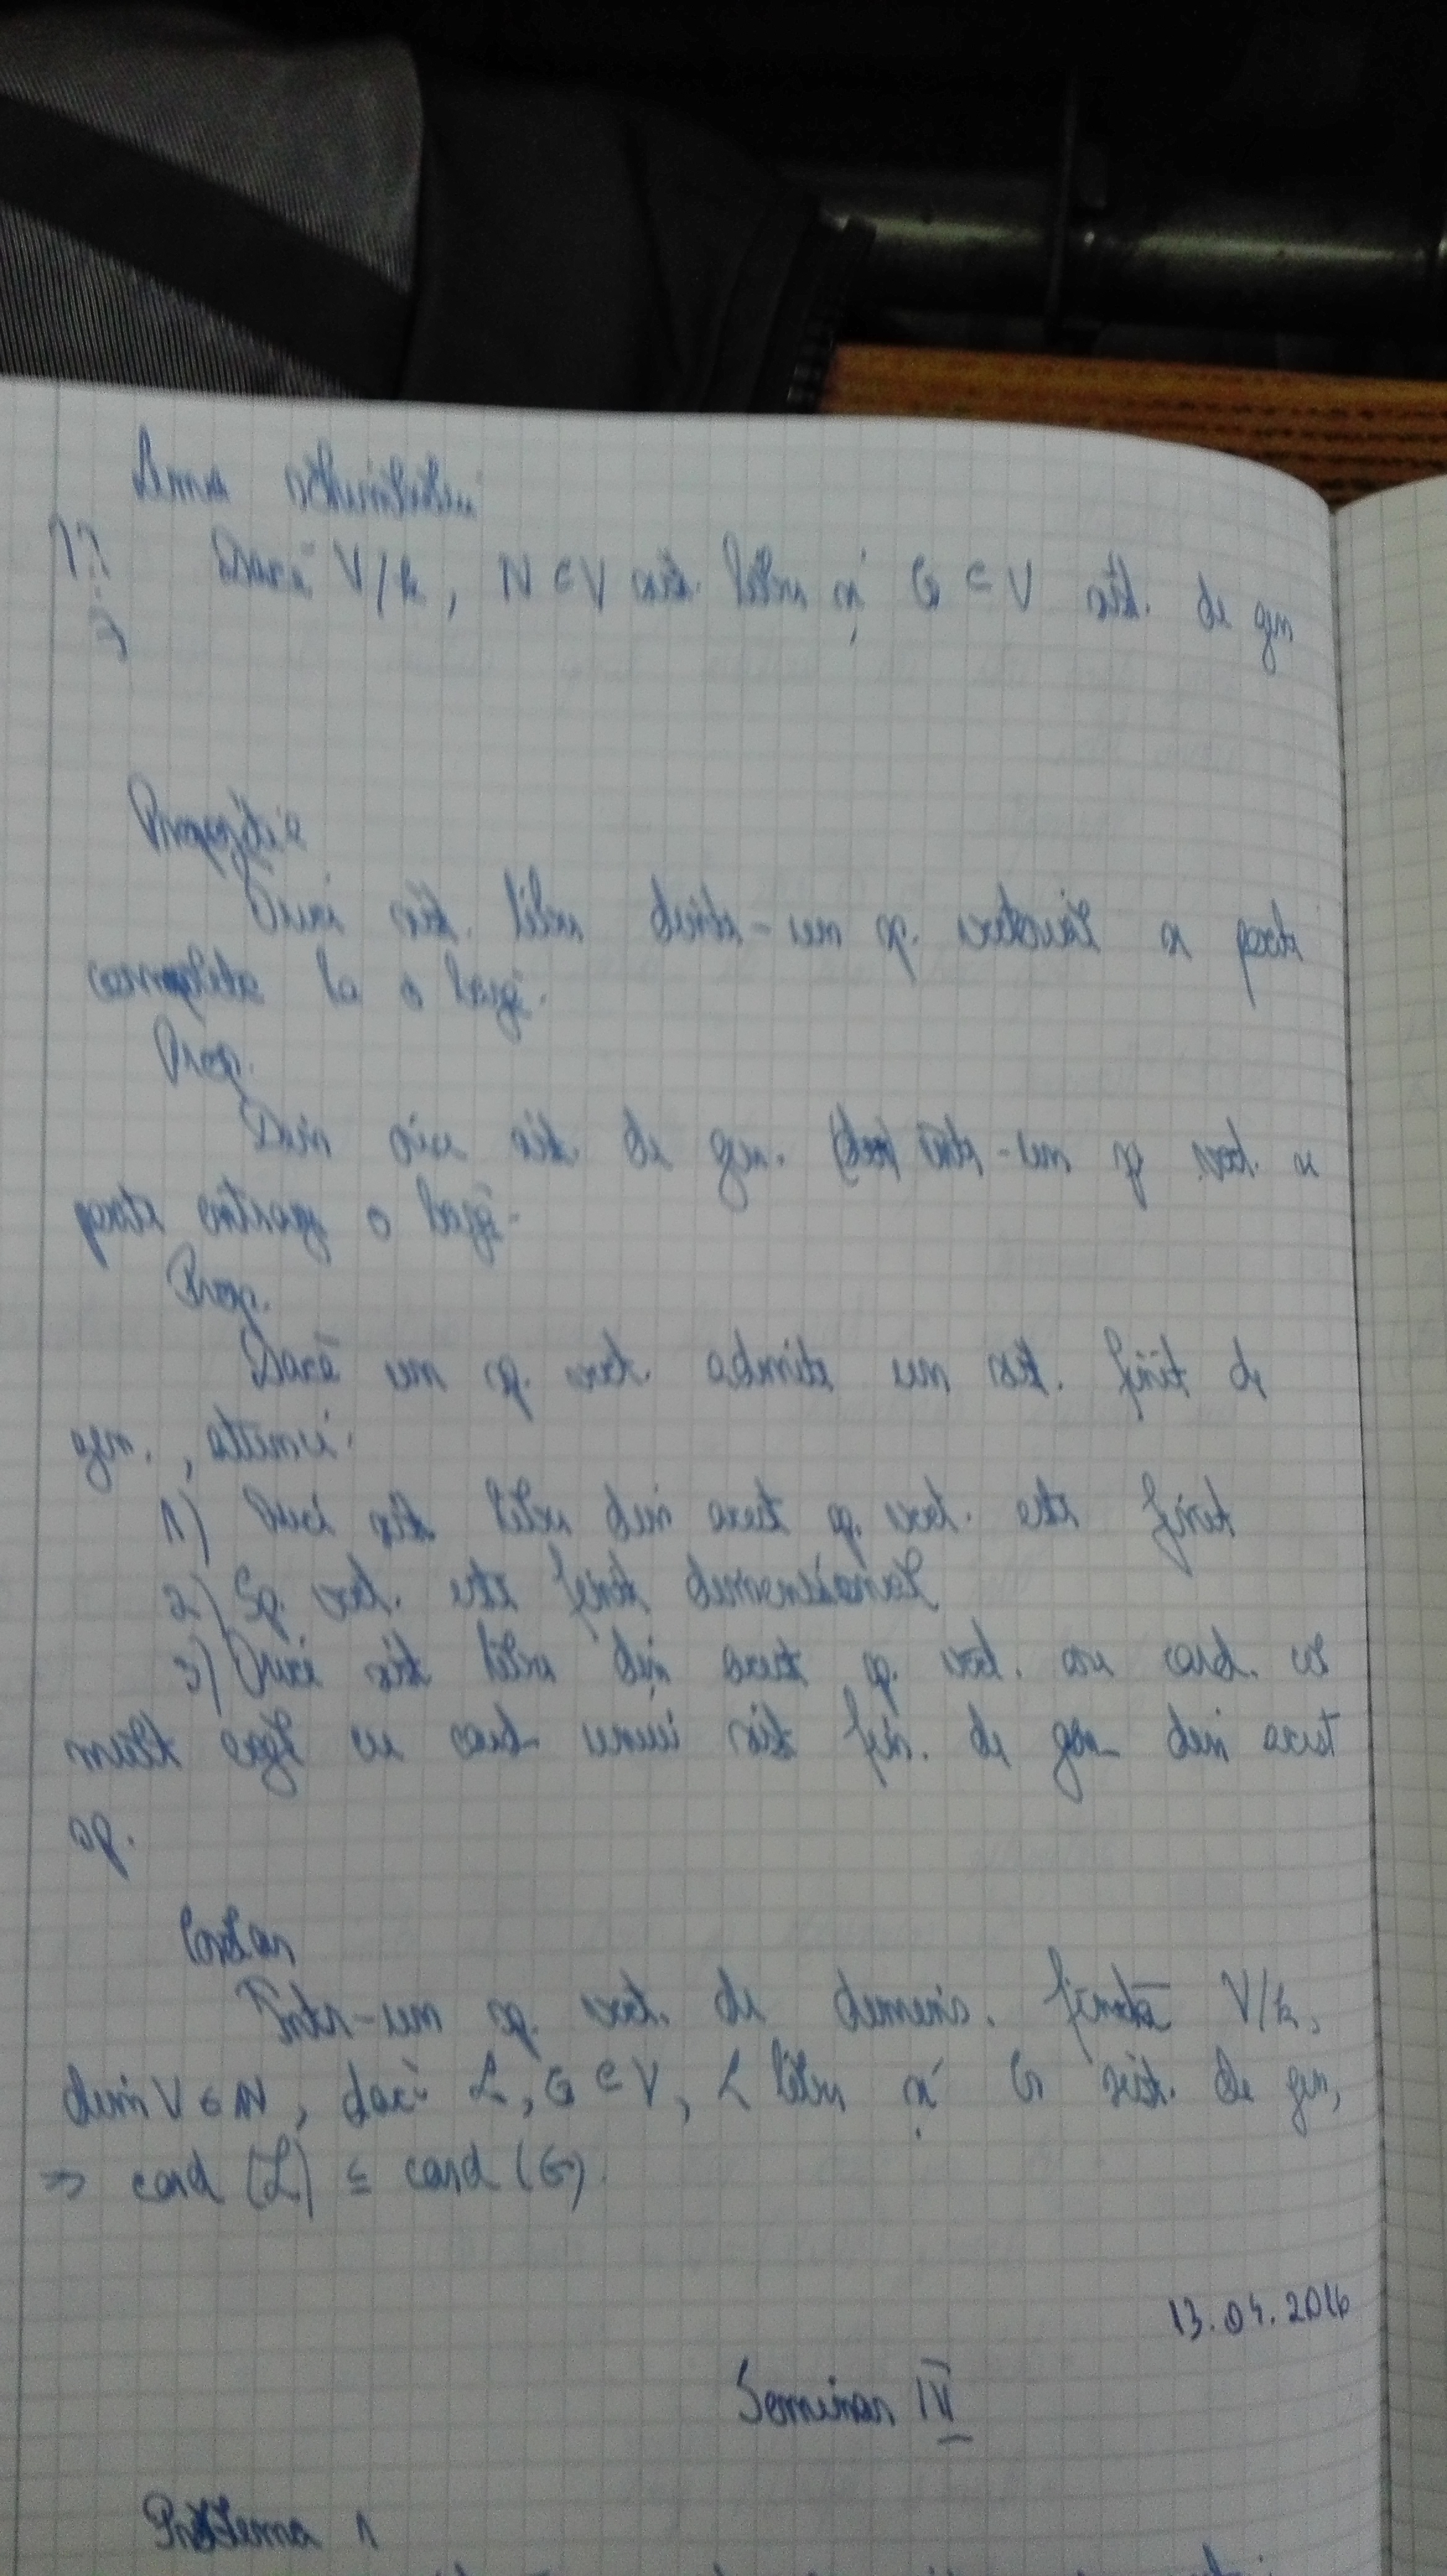 Lema schimbului
!!! Dacă V/k, N ⊂ V sist. liniar și G ⊂ V sist. de gen
Propoziție
Orice sist. liniar dintr-un sp. vectorial se poate
completa la o bază.
Prop.
Din orice sist. de gen. dintr-un sp vect. se
poate extrage o bază.
Prop.
Dacă un sp. vect. admite un sist. finit de
gen., atunci:
1) Orice sist liniar din acest sp. vect. este finit
2) Sp. vect. este finit dimensional
3) Orice sist liniar din acest sp. vect. are card. cel
mult egal cu card unui sist fin. de gen din acest
sp.
Corolar
Într-un sp. vect. de dimens. finită V/k,
dim V ∈ N, dacă L, G ⊂ V, L liniar și G sist. de gen,
⇒ card (L) ≤ card (G).
13.04.2016
Seminar IV
Problema 1